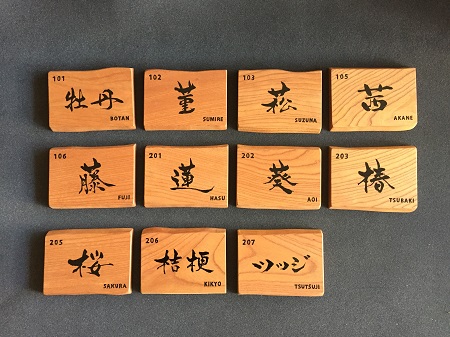 101
牡丹
BOTAN
102
菫
SUMIRE
103
菘
SUZUNA
105
茜
AKANE
106
藤
FUJI
201
蓮
HASU
202
葵
AOI
203
椿
TSUBAKI
205
桜
SAKURA
206
桔梗
KIKYO
207
ツツジ
TSUTSUJI